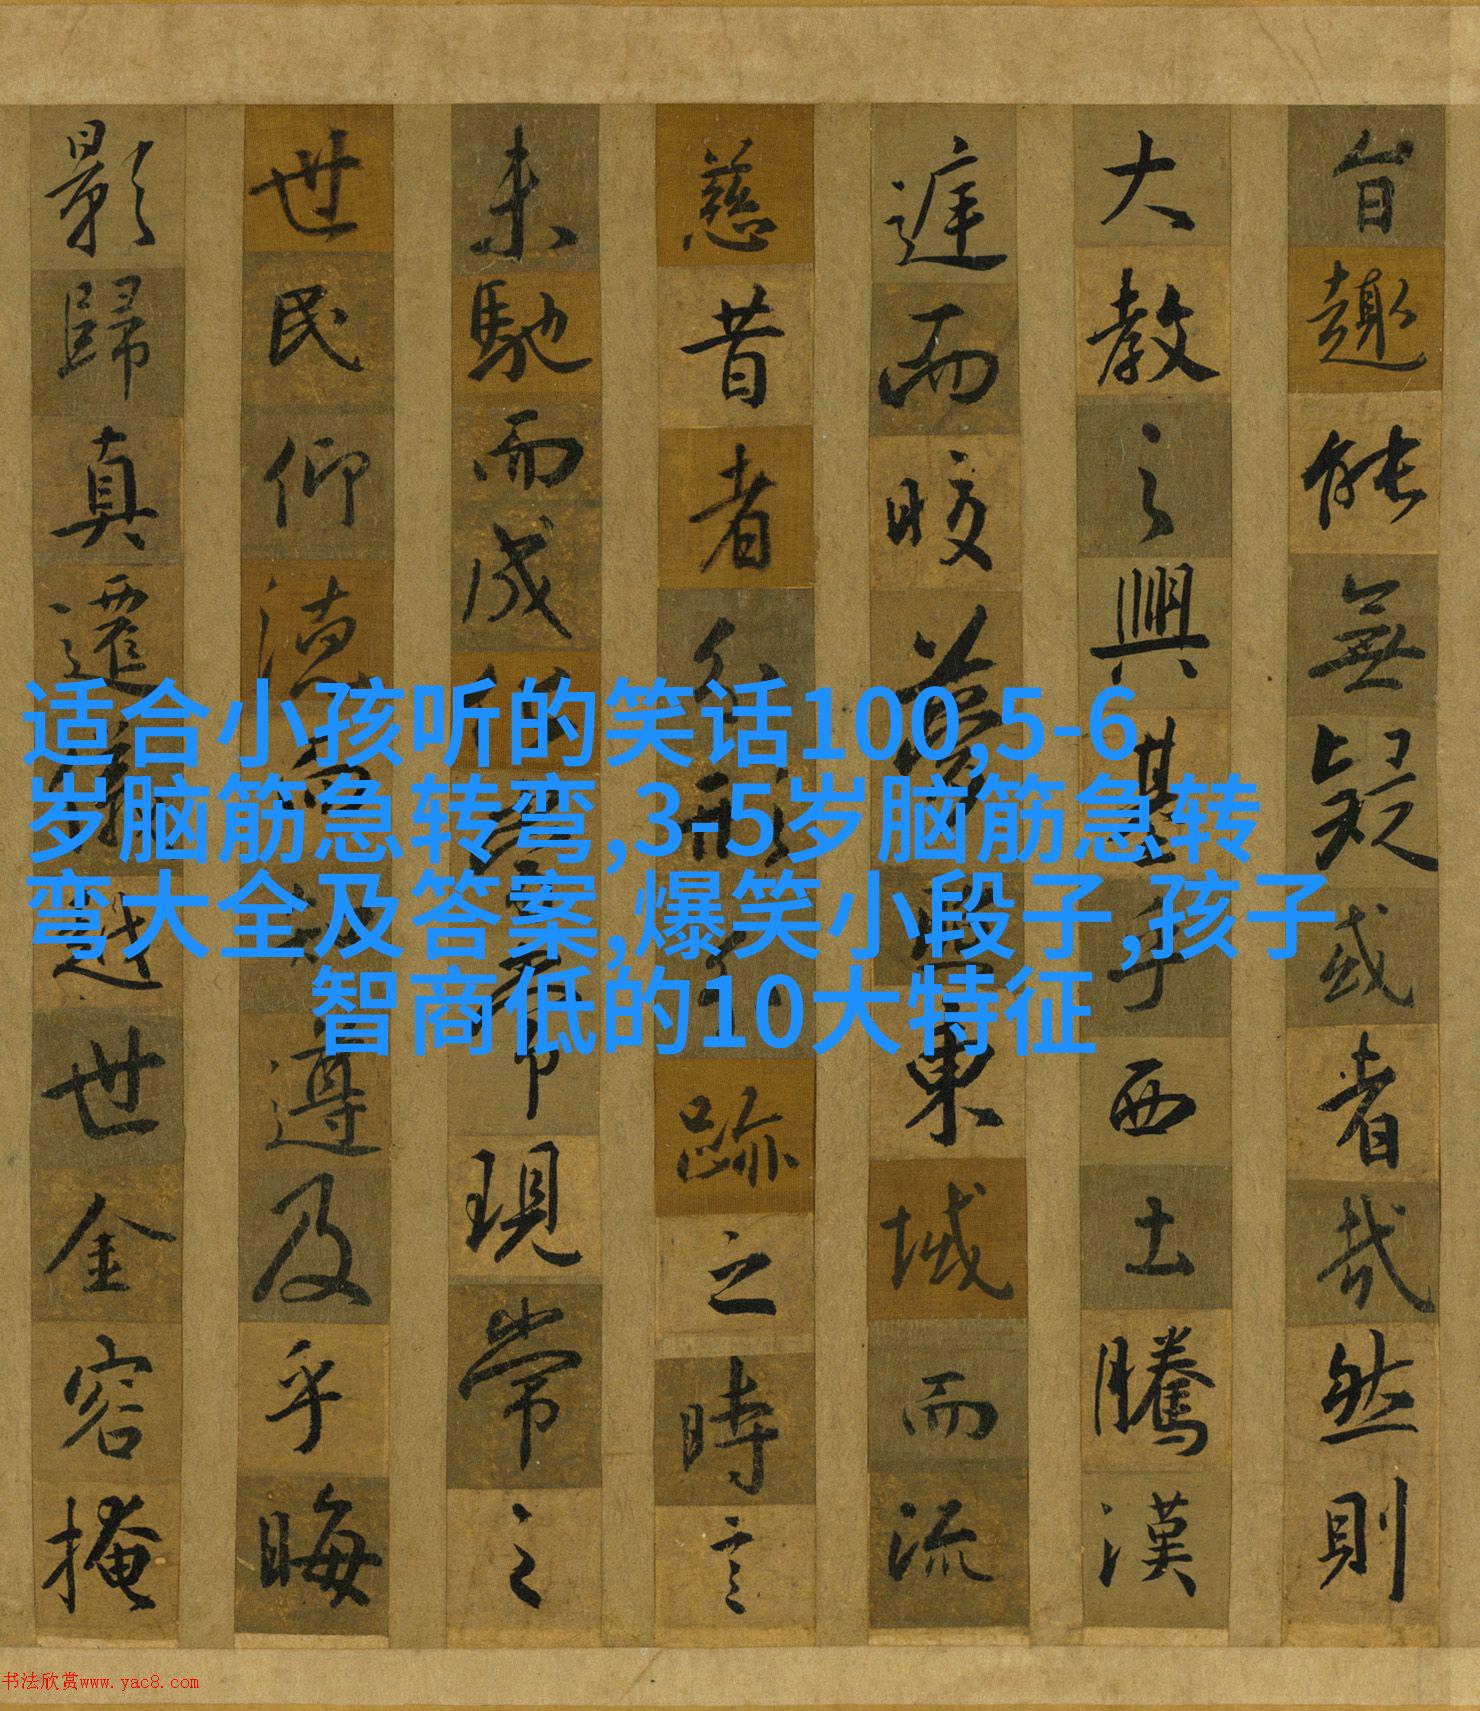 旨趣能無疑或者哉然則
大教之興基乎西土騰漢
庭而皎夢照東域而流
慈昔者分形分跡之時言
未馳而成化當常現常之
世民仰德而知遵及乎晦
影歸真遷儀越世金容掩
适合小孩听的笑话100,5-6
岁脑筋急转弯,3-5岁脑筋急转
弯大全及答案,爆笑小段子,孩子
智商低的10大特征
书法欣赏www.yac8.com